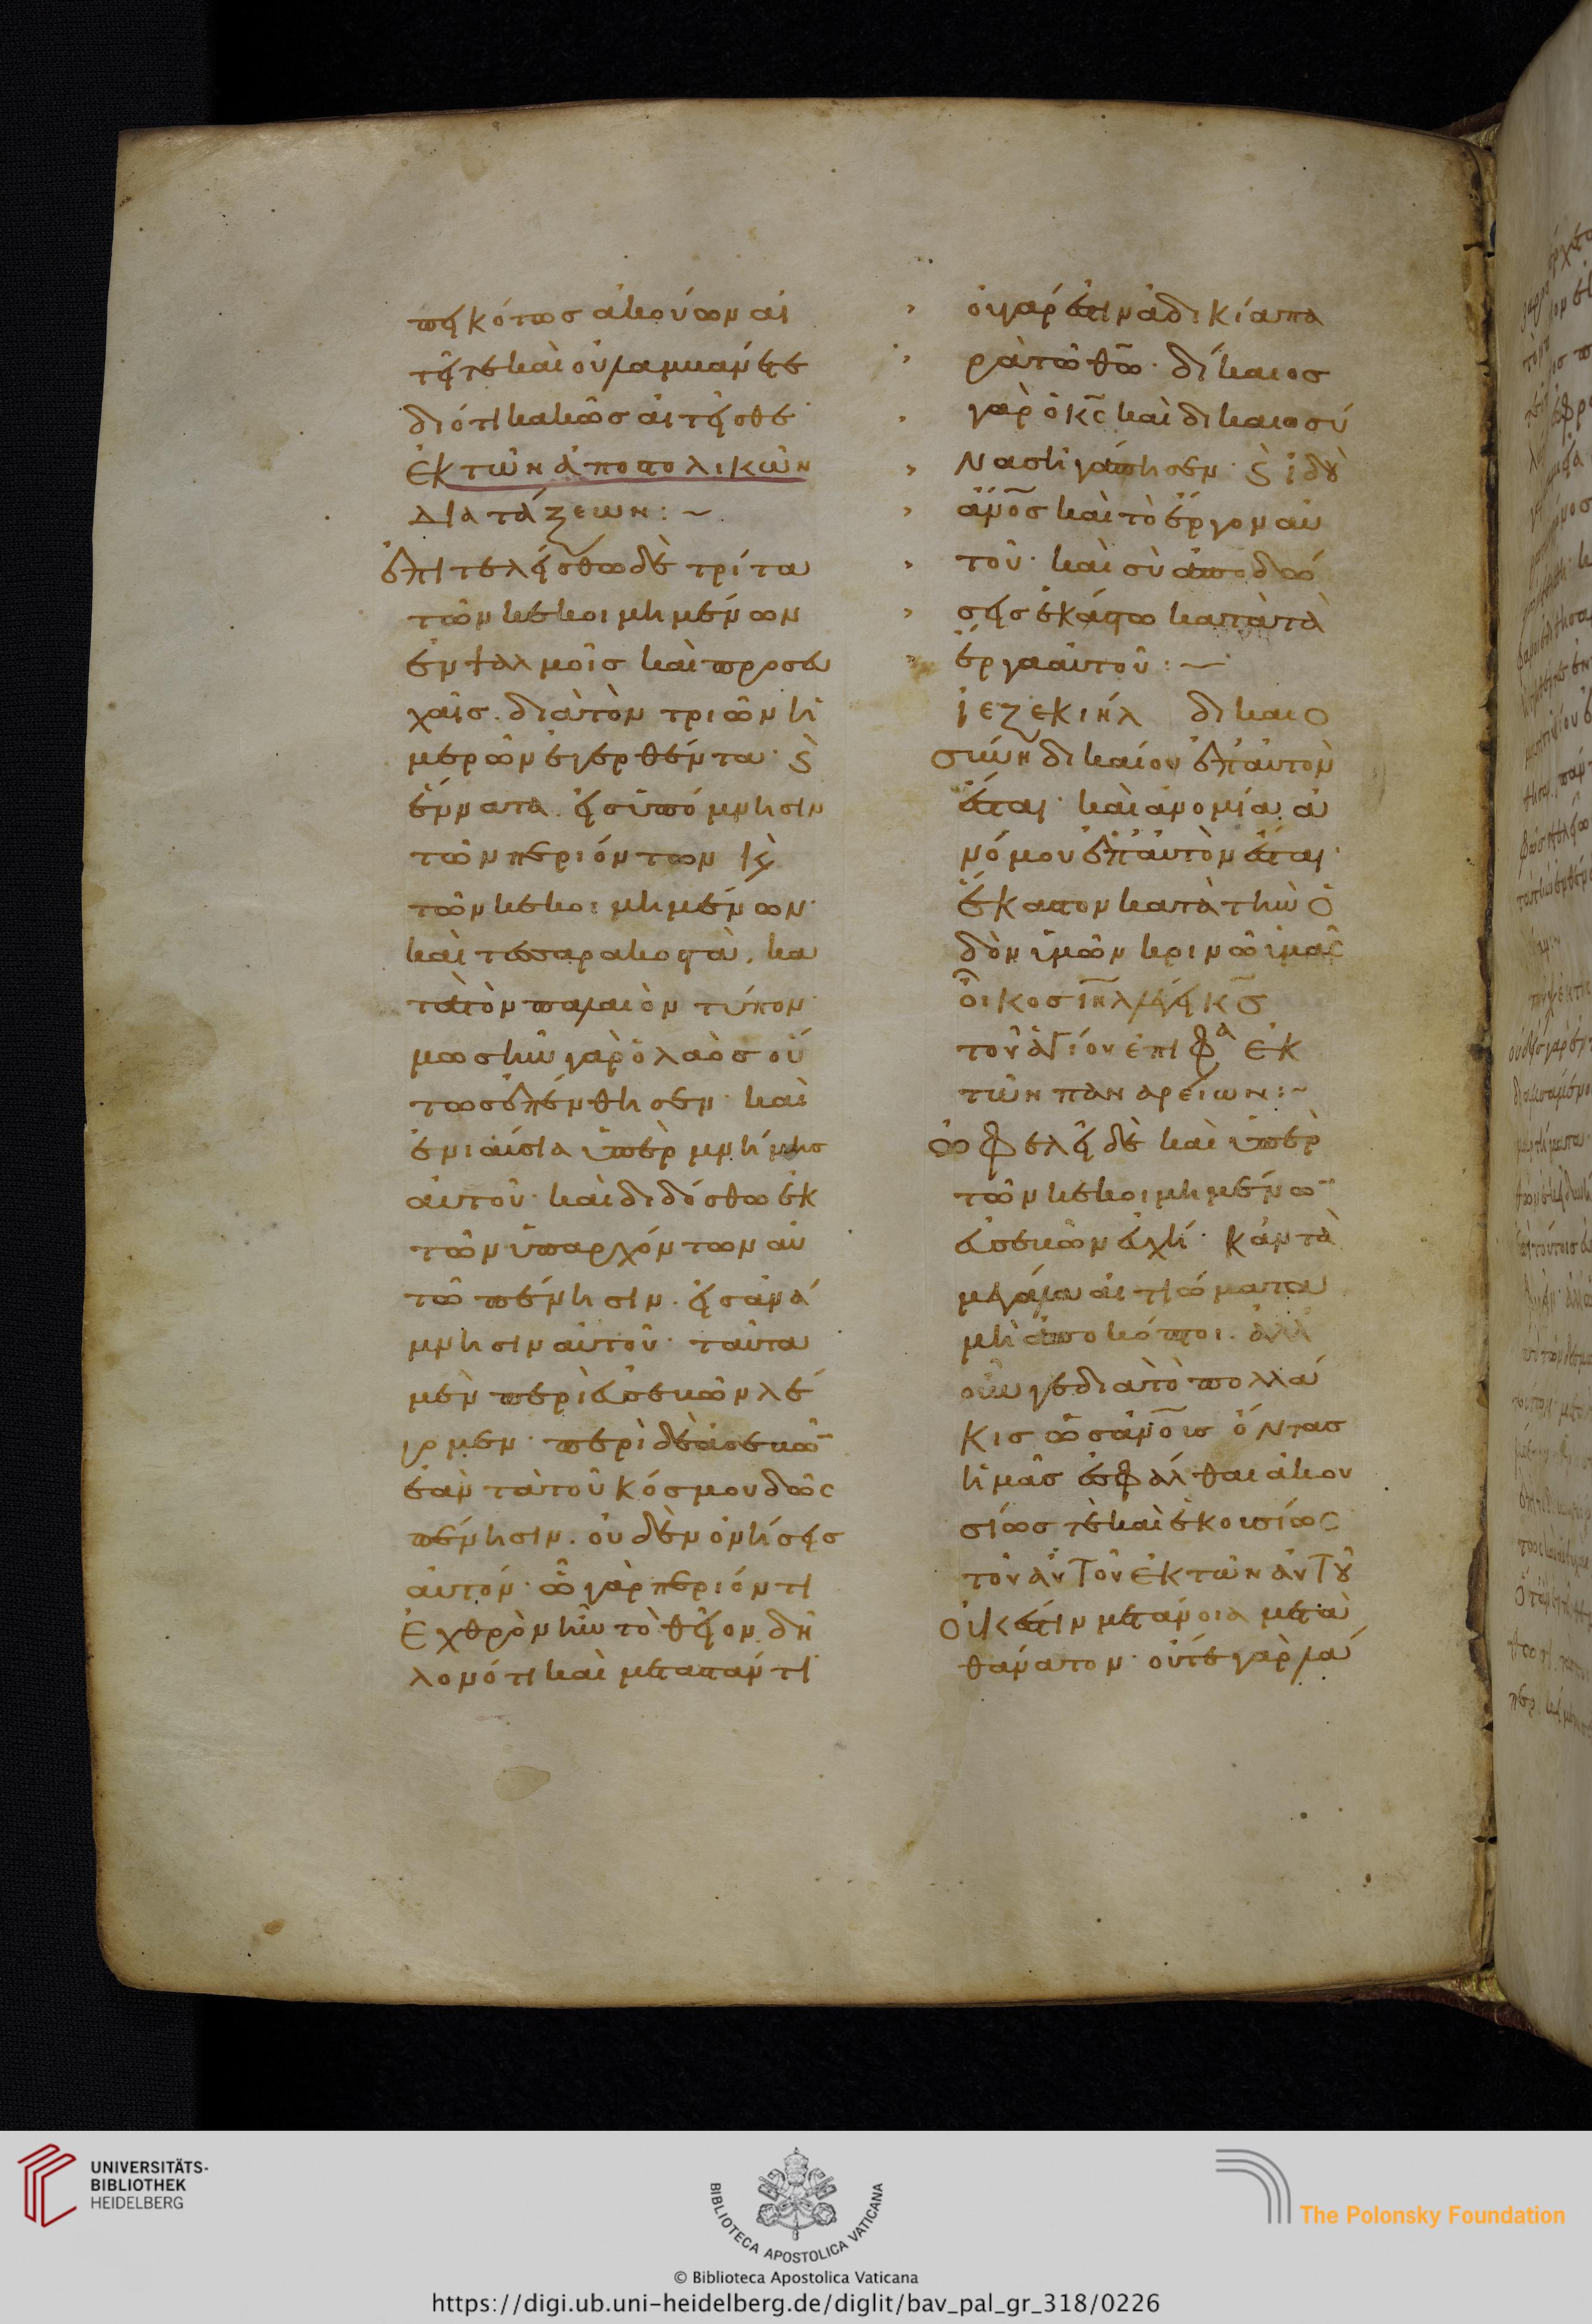 πεικόπως ἀκούων αἰ
τεῖτε καὶ οὐ λαμβάνετε
διότι κακῶς αἰτεῖσθε
ἐκ τῶν ἀποστολικῶν
διατάξεων:~
ἐπιτελείσθω δὲ τρίτα
τῶν κεκοιμημένων
ἐν ψαλμοῖς καὶ προσευ
χαῖς. διὰ τὸν τριῶν ἡ
μερῶν ἐγερθέντα· ϗ
ἔννατα. εἰς ὑπόμνησιν
τῶν περιόντων ϗ
τῶν κεκοιμημένων·
καὶ τεσσαρακοστὰ, κα
τὰ τὸν παλαιὸν τύπον·
μωσῆν γὰρ ὁ λαὸς οὕ
τως ἐπένθησεν· καὶ
ἐνιαύσια ὑπὲρ μνήμης
αὐτοῦ· καὶ διδόσθω ἐκ
τῶν ὑπαρχόντων αὐ
τῶ πένησιν. εἰς ἀνά
μνησιν αὐτοῦ· ταῦτα
μὲν περὶ εὐσεβῶν λέ
γομεν· περὶ δὲ ἀσεβῶ̅
ἐὰν τὰ τοῦ κόσμου δῶς
πένησιν. οὐδὲν ὀνήσεις
αὐτόν· ὧ γὰρ περιόντι
ἐχθρὸν ἦν τὸ θεῖον. δη
λονότι καὶ μεταστάντι·
οὐ γάρ ἐστιν ἀδικία πα
ρὰ τῶ θ̅ω̅· δίκαιος
γὰρ ὁ κ̅ς̅ καὶ δικαιοσύ
νας ἠγάπησεν· ϗ ἰδοὺ
ἄν̅ο̅ς καὶ τὸ ἔργον αὐ
τοῦ· καὶ σὺ ἀποδώ
σεις ἑκάστω κατὰ τὰ
ἔργα αὐτοῦ:~
ἰεζεκιὴλ δικαιο
σύνη δικαίου ἐπ' αὐτὸν
ἔσται· καὶ ἀνομία ἀ
νόμου ἐπ' αὐτὸν ἔσται·
ἕκαστον κατὰ τὴν ὁ
δὸν ὑμῶν κρινῶ ὑμᾶς
οἶκος ι̅η̅λ λέγει κ̅ς̅
τοῦ ἁγίου ἐπιφα ἐκ
τῶν παναρείων:~
ὠφελεῖ δὲ καὶ ὑπὲρ
τῶν κεκοιμημένω̅
εὐσεβῶν εὐχή· κἂν τὰ
μεγάλα αἰτιώματα
μὴ ἀποκόπτοι. ἀλλ'
οὖν γε διὰ τὸ πολλά
κις ὡς ἀν̅ο̅ις ὄντας
ἡμᾶς ἐσφάλθαι ἀκου
σίως τὲ καὶ ἑκουσίως
τοῦ αὐτοῦ ἐκ τῶν αὐτοῦ
οὐκ ἔστιν μετάνοια μετὰ
θάνατον· οὔτε γὰρ λά
UNIVERSITÄTS-
BIBLIOTHEK
HEIDELBERG
BIBLIOTECA APOSTOLICA VATICANA
The Polonsky Foundation
© Biblioteca Apostolica Vaticana
https://digi.ub.uni-heidelberg.de/diglit/bav_pal_gr_318/0226